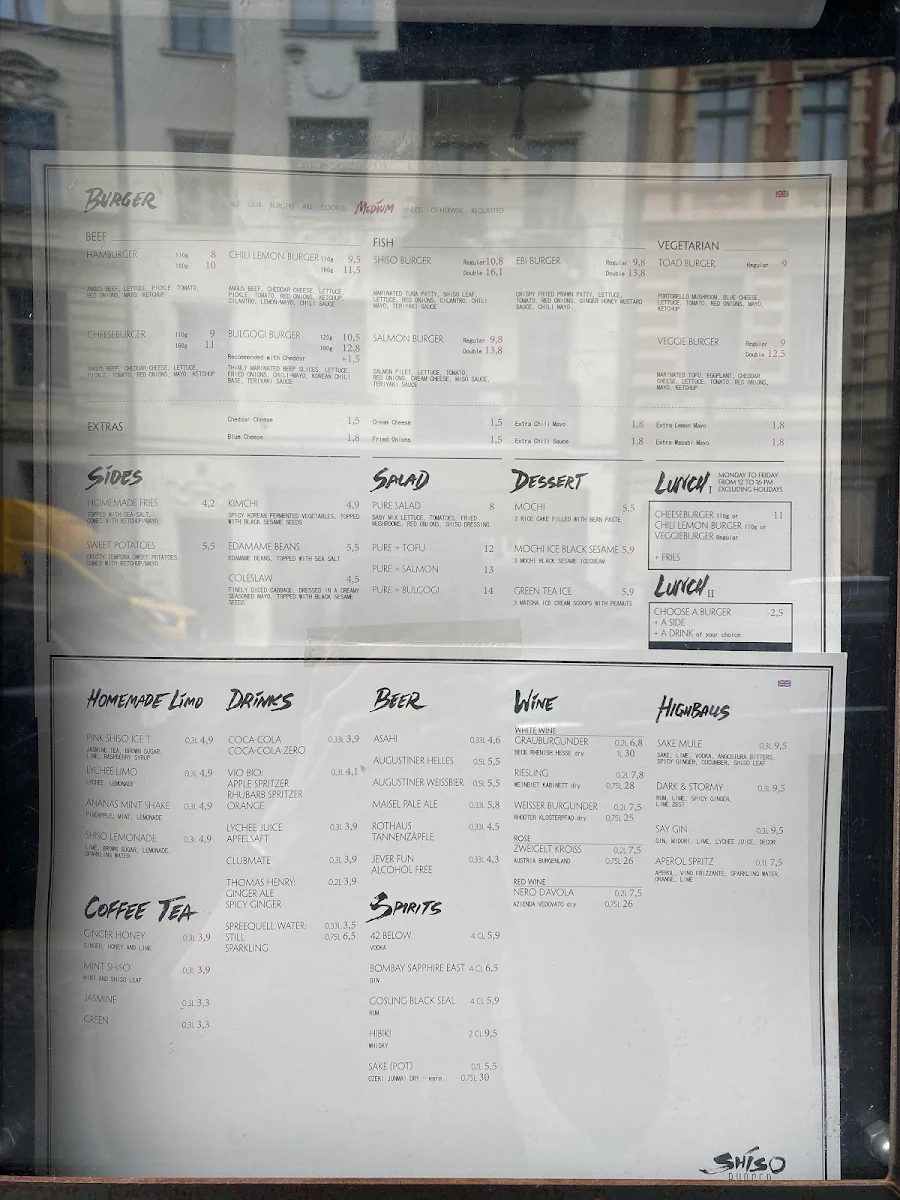 BURGER
ALL OUR BURGERS ARE COOKED MEDIUM UNLESS OTHERWISE REQUESTED
BEEF
HAMBURGER 110g 8
160g 10
ANGUS BEEF, LETTUCE, PICKLE, TOMATO,
RED ONIONS, MAYO, KETCHUP
CHEESEBURGER 110g 9
160g 11
ANGUS BEEF, CHEDDAR CHEESE, LETTUCE,
PICKLE, TOMATO, RED ONIONS, MAYO, KETCHUP
CHILI LEMON BURGER 110g 9,5
160g 11,5
ANGUS BEEF, CHEDDAR CHEESE, LETTUCE,
PICKLE, TOMATO, RED ONIONS, KETCHUP,
CILANTRO, LEMON-MAYO, CHILI SAUCE
BULGOGI BURGER 120g 10,5
180g 12,8
Recommended with Cheddar +1,5
THINLY MARINATED BEEF SLICES, LETTUCE,
FRIED ONIONS, CHILI-MAYO, KOREAN CHILI
BASE, TERIYAKI SAUCE
FISH
SHISO BURGER Regular 10,8
Double 16,1
MARINATED TUNA PATTY, SHISO LEAF,
LETTUCE, RED ONIONS, CILANTRO, CHILI
MAYO, TERIYAKI SAUCE
SALMON BURGER Regular 9,8
Double 13,8
SALMON FILET, LETTUCE, TOMATO,
RED ONIONS, CREAM CHEESE, MISO SAUCE,
TERIYAKI SAUCE
EBI BURGER Regular 9,8
Double 13,8
CRISPY FRIED PRAWN PATTY, LETTUCE,
TOMATO, RED ONIONS, GINGER HONEY MUSTARD
SAUCE, CHILI MAYO
VEGETARIAN
TOAD BURGER Regular 9
PORTOBELLO MUSHROOM, BLUE CHEESE,
LETTUCE, TOMATO, RED ONIONS, MAYO,
KETCHUP
VEGGIE BURGER Regular 9
Double 12,5
MARINATED TOFU, EGGPLANT, CHEDDAR
CHEESE, LETTUCE, TOMATO, RED ONIONS,
MAYO, KETCHUP
EXTRAS
Cheddar Cheese 1,5
Blue Cheese 1,8
Cream Cheese 1,5
Fried Onions 1,5
Extra Chili Mayo 1,8
Extra Chili Sauce 1,8
Extra Lemon Mayo 1,8
Extra Wasabi Mayo 1,8
SIDES
HOMEMADE FRIES 4,2
TOPPED WITH SEA-SALT,
COMES WITH KETCHUP/MAYO
SWEET POTATOES 5,5
CRUSTY TEMPURA SWEET POTATOES,
COMES WITH KETCHUP/MAYO
KIMCHI 4,9
SPICY KOREAN FERMENTED VEGETABLES, TOPPED
WITH BLACK SESAME SEEDS
EDAMAME BEANS 5,5
EDAMAME BEANS, TOPPED WITH SEA SALT
COLESLAW 4,5
FINELY DICED CABBAGE, DRESSED IN A CREAMY
SEASONED MAYO, TOPPED WITH BLACK SESAME
SEEDS
SALAD
PURE SALAD 8
BABY MIX LETTUCE, TOMATOES, FRIED
MUSHROOMS, RED ONIONS, SHISO DRESSING
PURE + TOFU 12
PURE + SALMON 13
PURE + BULGOGI 14
DESSERT
MOCHI 5,5
2 RICE CAKE FILLED WITH BEAN PASTE
MOCHI ICE BLACK SESAME 5,9
3 MOCHI BLACK SESAME ICECREAM
GREEN TEA ICE 5,9
3 MATCHA ICE CREAM SCOOPS WITH PEANUTS
LUNCH I MONDAY TO FRIDAY
FROM 12 TO 16 PM
EXCLUDING HOLIDAYS
CHEESEBURGER 110g or 11
CHILI LEMON BURGER 110g or
VEGGIEBURGER Regular
+ FRIES
LUNCH II
CHOOSE A BURGER -2,5
+ A SIDE
+ A DRINK of your choice
HOMEMADE LIMO
PINK SHISO ICE T 0,3L 4,9
JASMINE TEA, BROWN SUGAR,
LIME, RASPBERRY SYRUP
LYCHEE LIMO 0,3L 4,9
LYCHEE, LEMONADE
ANANAS MINT SHAKE 0,3L 4,9
PINEAPPLE, MINT, LEMONADE
SHISO LEMONADE 0,3L 4,9
LIME, BROWN SUGAR, LEMONADE,
SPARKLING WATER
COFFEE TEA
GINGER HONEY 0,3L 3,9
GINGER, HONEY AND LIME
MINT SHISO 0,3L 3,9
MINT AND SHISO LEAF
JASMINE 0,3L 3,3
GREEN 0,3L 3,3
DRINKS
COCA-COLA 0,33L 3,9
COCA-COLA ZERO
VIO BIO: 0,3L 4,1
APPLE SPRITZER
RHUBARB SPRITZER
ORANGE
LYCHEE JUICE 0,3L 3,9
APFELSAFT
CLUBMATE 0,3L 3,9
THOMAS HENRY: 0,2L 3,9
GINGER ALE
SPICY GINGER
SPREEQUELL WATER: 0,33L 3,5
STILL 0,75L 6,5
SPARKLING
BEER
ASAHI 0,33L 4,6
AUGUSTINER HELLES 0,5L 5,5
AUGUSTINER WEISSBIER 0,5L 5,5
MAISEL PALE ALE 0,33L 5,8
ROTHAUS 0,33L 4,5
TANNENZÄPFLE
JEVER FUN 0,33L 4,3
ALCOHOL FREE
SPIRITS
42 BELOW 4 CL 5,9
VODKA
BOMBAY SAPPHIRE EAST 4 CL 6,5
GIN
GOSLING BLACK SEAL 4 CL 5,9
RUM
HIBIKI 2 CL 9,5
WHISKY
SAKE (POT) 0,1L 5,5
OZEKI JUNMAI DRY - warm 0,75L 30
WINE
WHITE WINE
GRAUBURGUNDER 0,2L 6,8
BECK RHENISH HESSE dry 1L 30
RIESLING 0,2L 7,8
WEINBIET KABINETT dry 0,75L 28
WEISSER BURGUNDER 0,2L 7,5
RHODTER KLOSTERPFAD dry 0,75L 25
ROSE
ZWEIGELT KROISS 0,2L 7,5
AUSTRIA BURGENLAND 0,75L 26
RED WINE
NERO D'AVOLA 0,2L 7,5
AZIENDA VEDOVATO dry 0,75L 26
HIGHBALLS
SAKE MULE 0,3L 9,5
SAKE, LIME, VODKA, ANGOSTURA BITTERS,
SPICY GINGER, CUCUMBER, SHISO LEAF
DARK & STORMY 0,3L 9,5
RUM, LIME, SPICY GINGER,
LIME ZEST
SAY GIN 0,3L 9,5
GIN, MIDORI, LIME, LYCHEE JUICE, DECOR
APEROL SPRITZ 0,3L 7,5
APEROL, VINO FRIZZANTE, SPARKLING WATER,
ORANGE, LIME
SHISO
BURGER